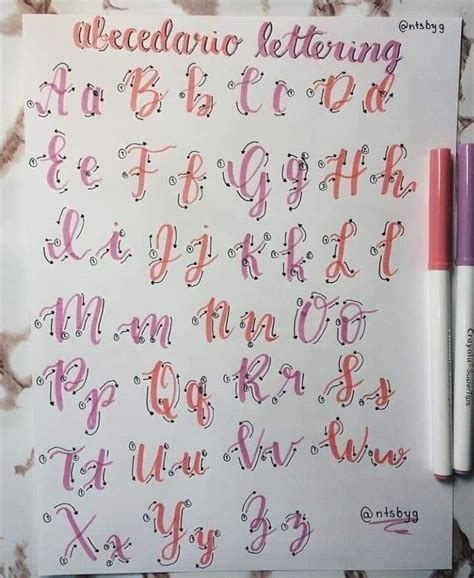 @ntsbyg
abecedario lettering
A a B b C c D d
E e F f G g H h
I i J j K k L l
M m N n O o
P p Q q R r S s
T t U u V v W w
X x Y y Z z
@ntsbyg
Crayola Supertips